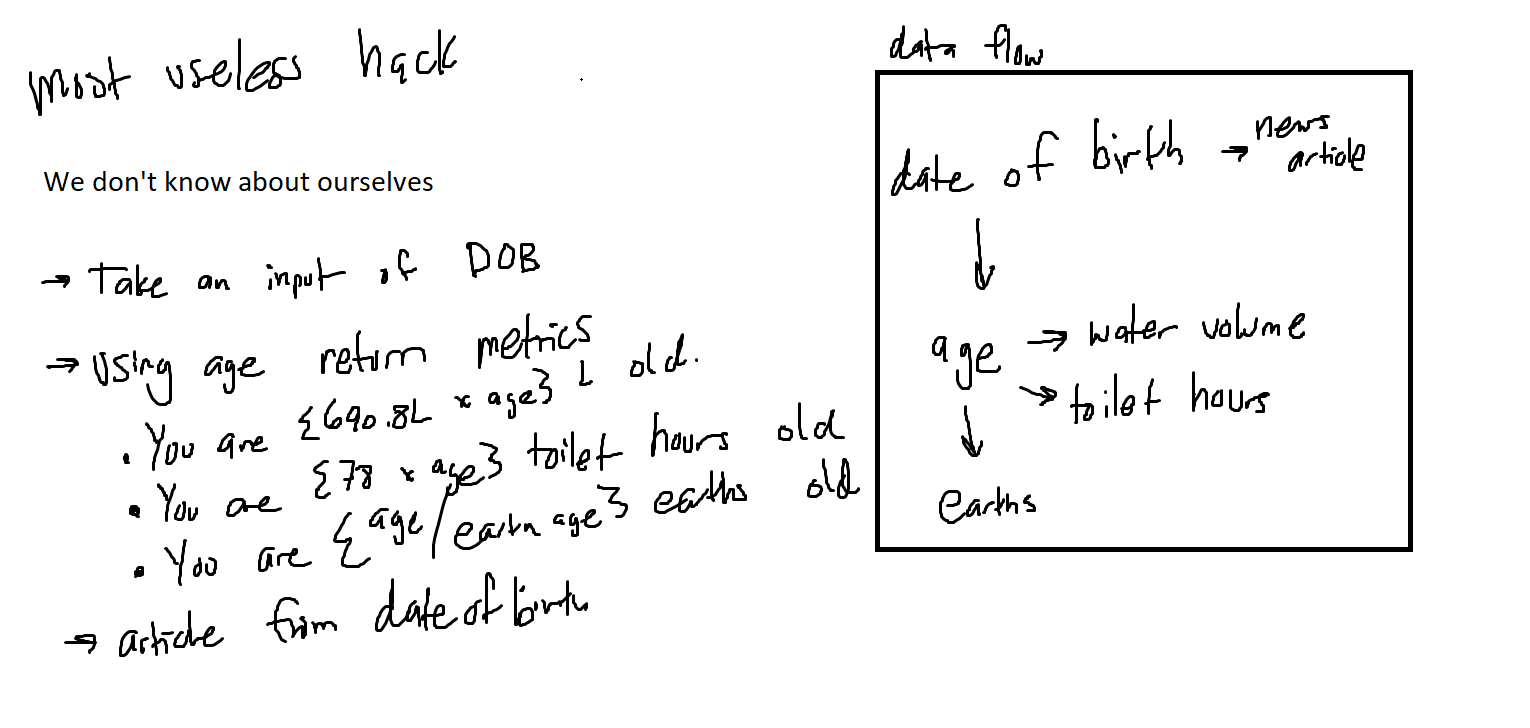 most useless hack
We don't know about ourselves
→ Take an input of DOB
→ Using age return metrics
• You are {690.8L × age} L old.
• You are {78 × age} toilet hours old
• You are {age/earth age} earths old
→ article from date of birth
data flow
date of birth → news article
↓
age → water volume
→ toilet hours
↓
earths